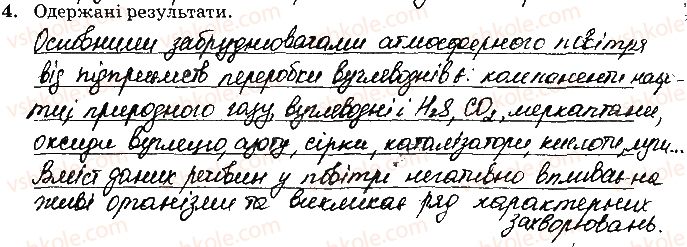 4. Одержані результати.
Основними забруднювачами атмосферного повітря
від підприємств переробки вуглеводнів є: компоненти наф-
ти і природного газу, вуглеводні і H₂S, CO₂, меркаптани,
оксиди вуглецю, азоту, сірки, каталізатори, кислоти, луги...
Вміст даних речовин у повітрі негативно впливає на
живі організми та викликає ряд характерних
захворювань.